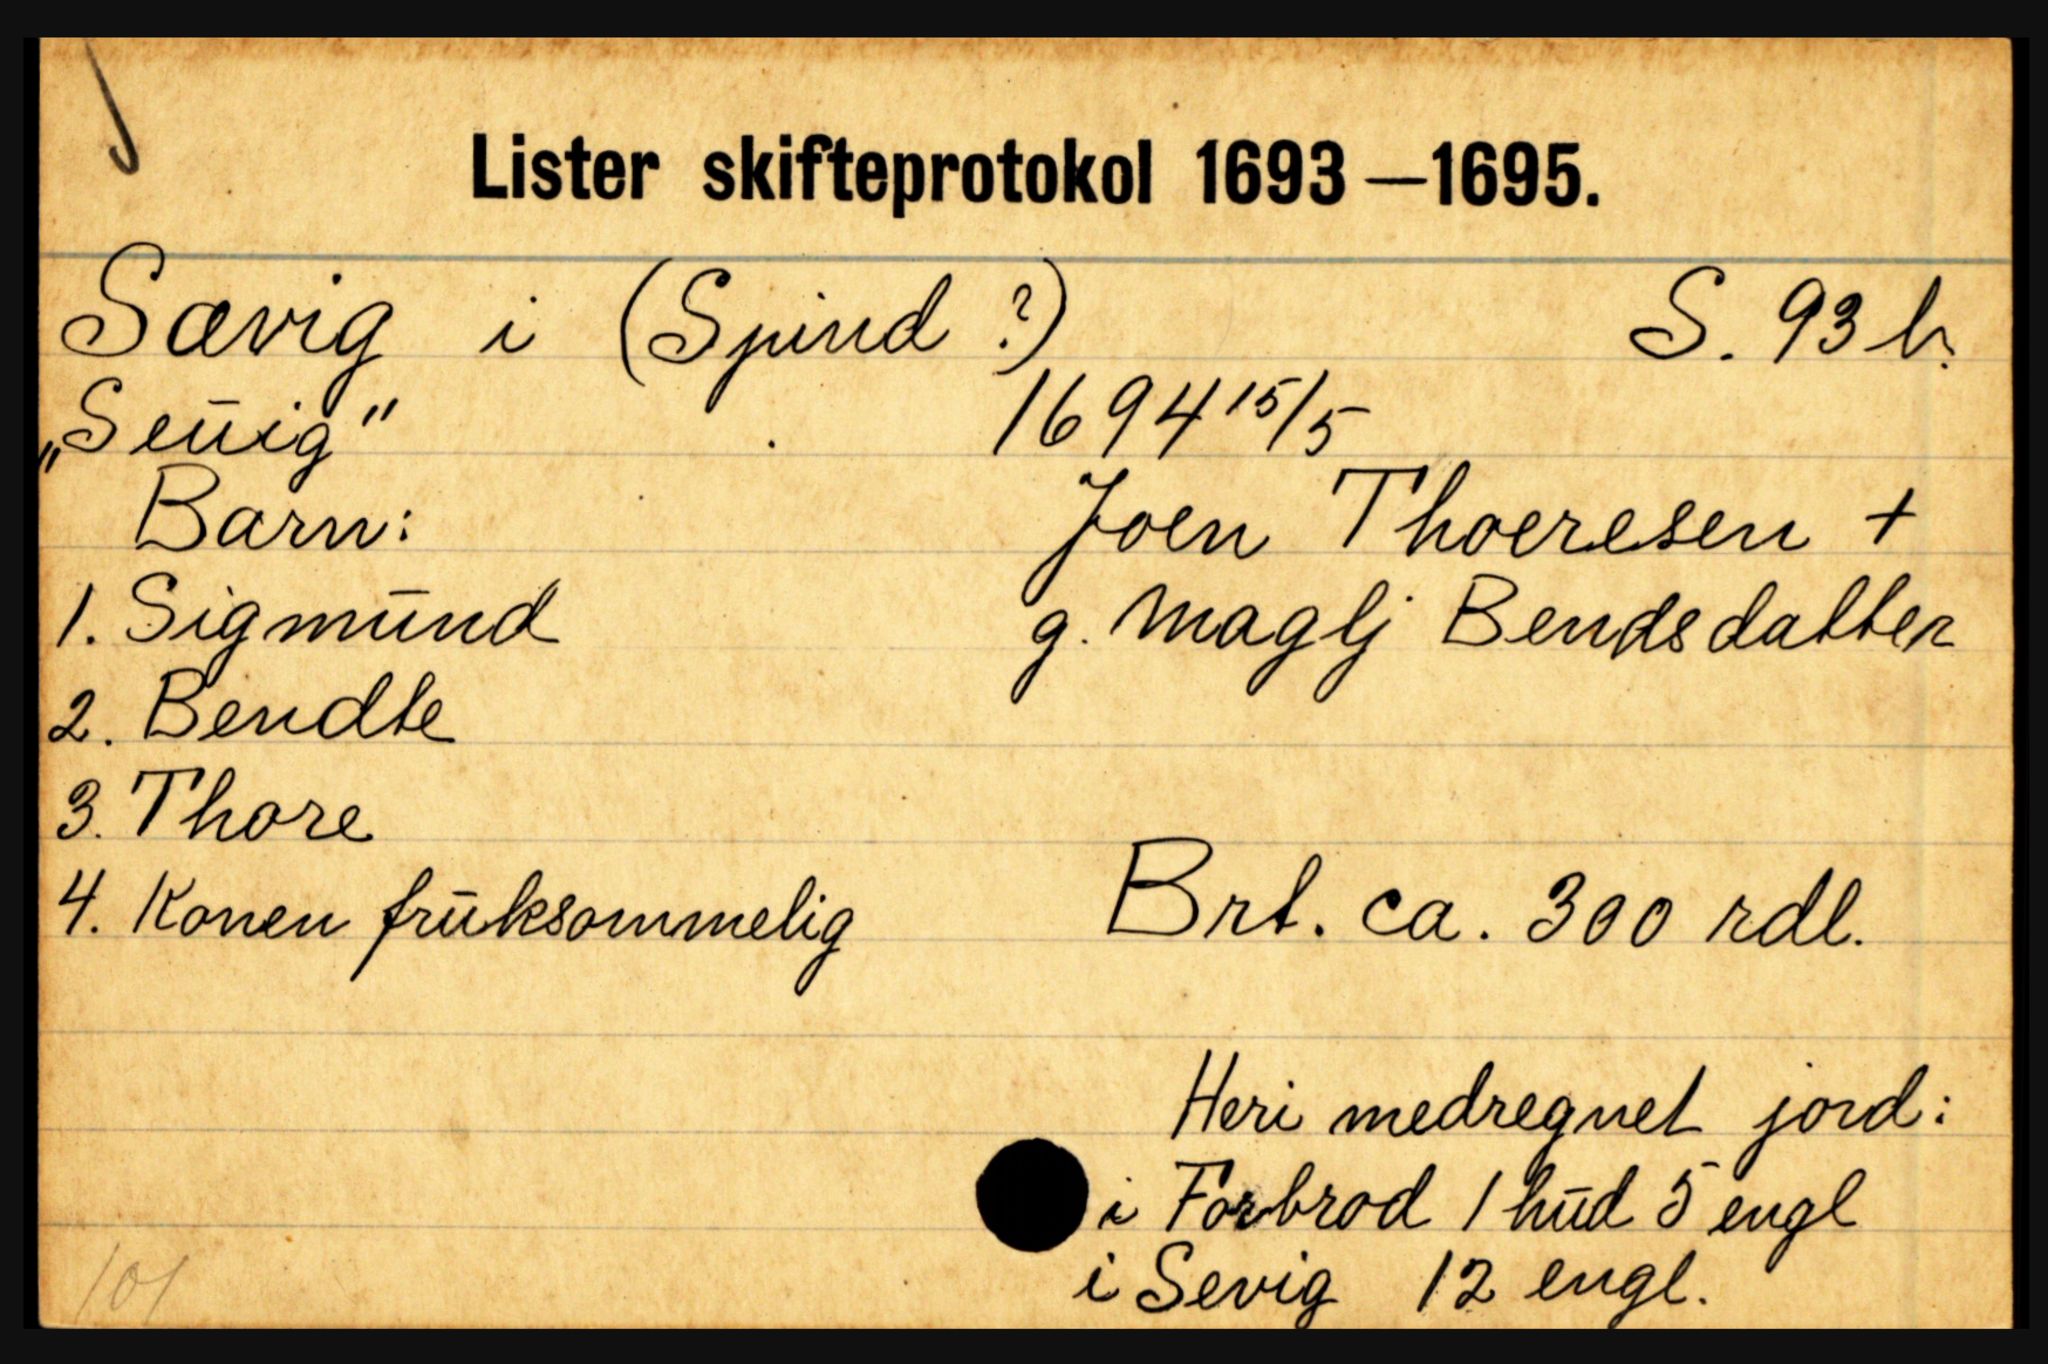 Lister skifteprotokol 1693—1695.
Sævig i (Spind ?) S. 93 b.
„Seŭig" 1694 15/5
Barn: Joen Thoeresen +
1. Sigmŭnd g. Maglj Bendsdatter
2. Bendte
3. Thore
4. Konen frŭksommelig Brt. ca. 300 rdl.
Heri medregnet jord:
i Forbrod 1 hŭd 5 engl
i Sevig 12 engl.
101